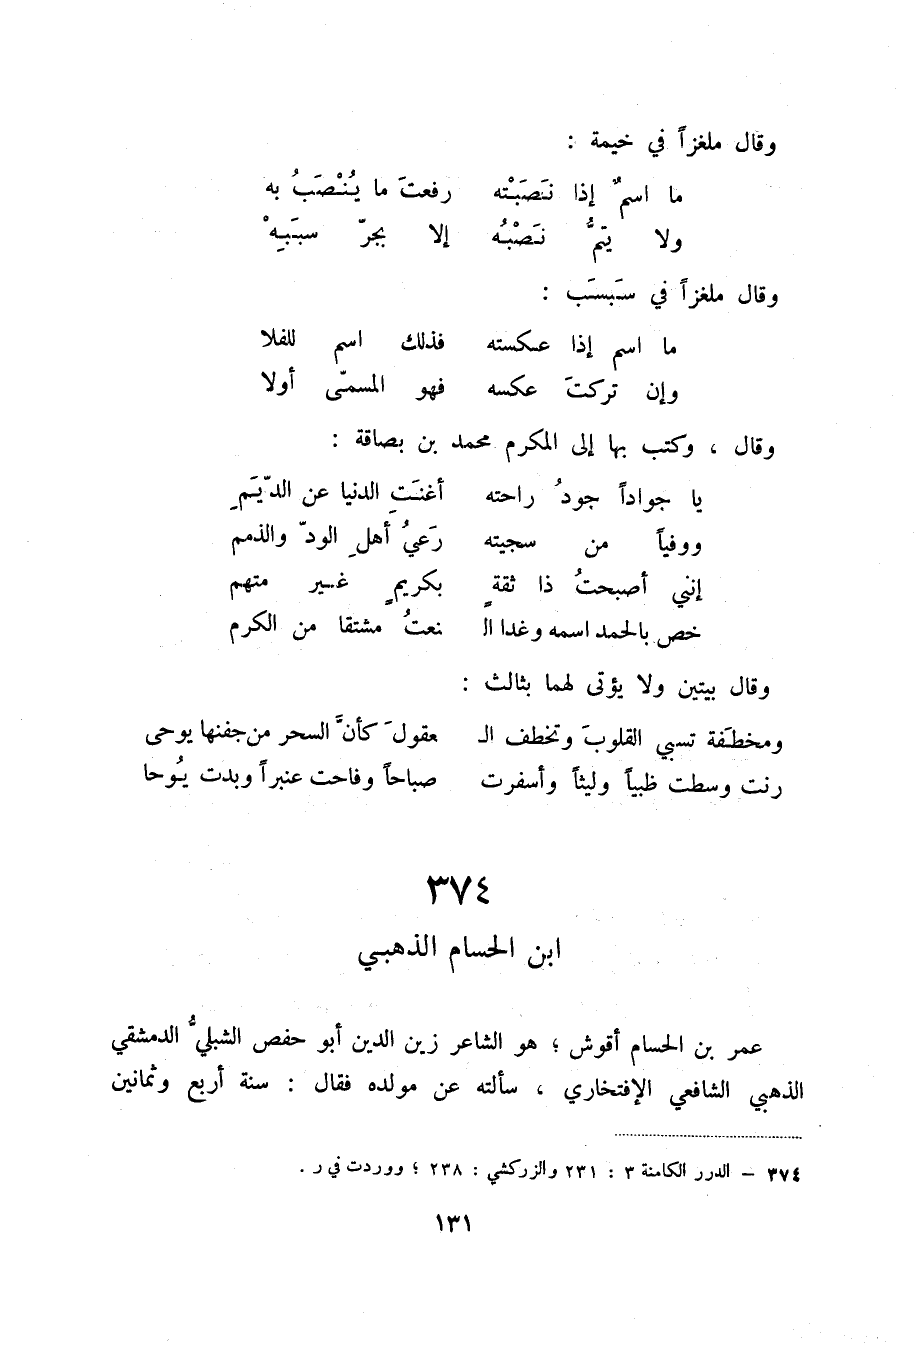 وقال ملغزاً في خيمة :
ما اسمٌ إذا نَصَبْته رفعتَ ما يُنْصَبُ به
ولا يتمُّ نَصْبُه إلا بجرّ سبَبِهْ
وقال ملغزاً في سَبسَب :
ما اسم إذا عكسته فذلك اسم للفلا
وإن تركتَ عكسه فهو المسمّى أولا
وقال ، وكتب بها إلى المكرم محمد بن بصاقة :
يا جواداً جودُ راحته أغنَتِ الدنيا عن الدّيَمِ
ووفياً من سجيته رَعيُ أهلِ الودّ والذمم
إنني أصبحتُ ذا ثقةٍ بكريمٍ غير متهم
خص بالحمد اسمه وغدا الـ نعتُ مشتقا من الكرم
وقال بيتين ولا يؤتى لهما بثالث :
ومخطَفة تسبي القلوبَ وتخطف الـ عقولَ كأنَّ السحر من جفنها يوحى
رنت وسطت ظبياً وليثاً وأسفرت صباحاً وفاحت عنبراً وبدت يُوحا
٣٧٤
ابن الحسام الذهبي
عمر بن الحسام أقوش ؛ هو الشاعر زين الدين أبو حفص الشبليُّ الدمشقي
الذهبي الشافعي الإفتخاري ، سألته عن مولده فقال : سنة أربع وثمانين
٣٧٤ – الدرر الكامنة ٣ : ٢٣١ والزركشي : ٢٣٨ ؛ ووردت في ر .
١٣١